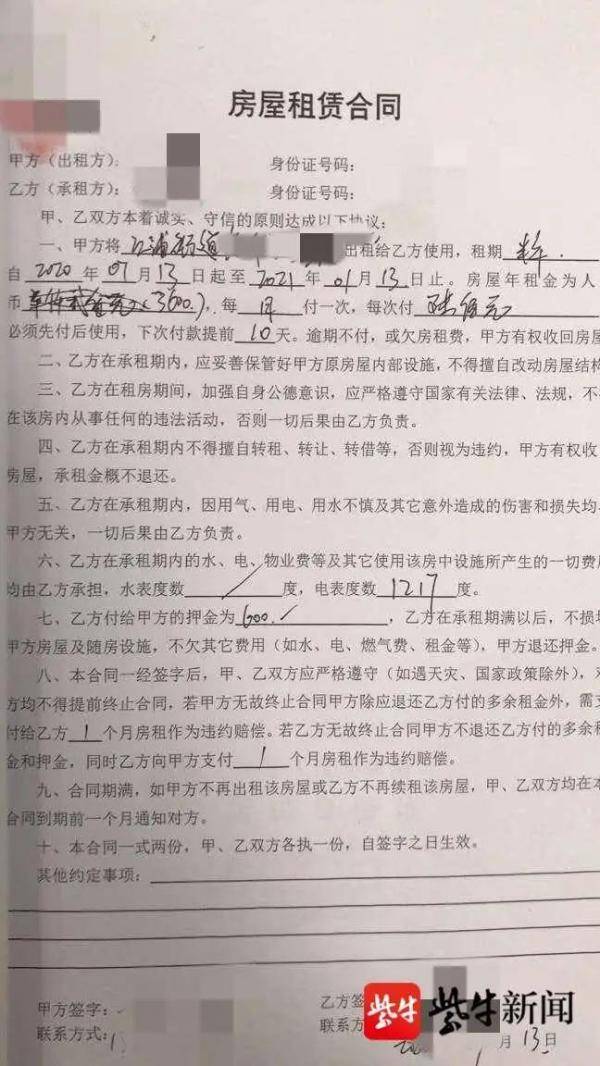 房屋租赁合同
甲方（出租方）：
身份证号码：
乙方（承租方）：
身份证号码：
甲、乙双方本着诚实、守信的原则达成以下协议：
一、甲方将 江浦街道 出租给乙方使用，租期 半年.
自 2020 年 07 月 13 日起至 2021 年 01 月 13 日止。房屋年租金为人
币 (3600.)，每 月 付一次，每次付 陆佰元
必须先付后使用，下次付款提前 10 天。逾期不付，或欠房租费，甲方有权收回房屋
二、乙方在承租期内，应妥善保管好甲方原房屋内部设施，不得擅自改动房屋结构
三、乙方在租房期间，加强自身公德意识，应严格遵守国家有关法律、法规，不
在该房内从事任何的违法活动，否则一切后果由乙方负责。
四、乙方在承租期内不得擅自转租、转让、转借等，否则视为违约，甲方有权收
房屋，承租金概不退还。
五、乙方在承租期内，因用气、用电、用水不慎及其它意外造成的伤害和损失均
甲方无关，一切后果由乙方负责。
六、乙方在承租期内的水、电、物业费等及其它使用该房中设施所产生的一切费
均由乙方承担，水表度数 / 度，电表度数 1217 度。
七、乙方付给甲方的押金为 600. ，乙方在承租期满以后，不损
甲方房屋及随房设施，不欠其它费用（如水、电、燃气费、租金等），甲方退还押金。
八、本合同一经签字后，甲、乙双方应严格遵守（如遇天灾、国家政策除外），
方均不得提前终止合同，若甲方无故终止合同甲方除应退还乙方付的多余租金外，需
付给乙方 1 个月房租作为违约赔偿。若乙方无故终止合同甲方不退还乙方付的多余
金和押金，同时乙方向甲方支付 1 个月房租作为违约赔偿。
九、合同期满，如甲方不再出租该房屋或乙方不再续租该房屋，甲、乙双方均在本
合同到期前一个月通知对方。
十、本合同一式两份，甲、乙双方各执一份，自签字之日生效。
其他约定事项：
甲方签字：
乙方签
联系方式：
联系方
月 13 日
紫牛 紫牛新闻